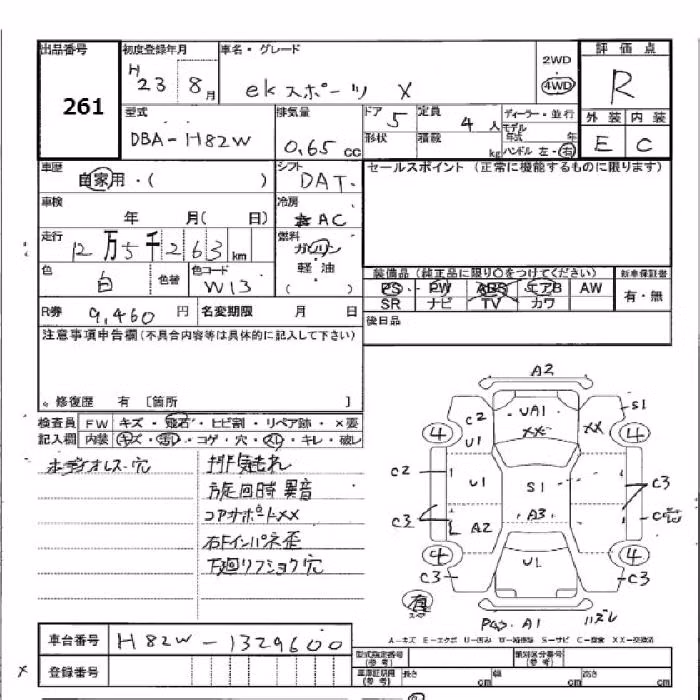 出品番号 初度登録年月 車名・グレード 評価点
261
H 23 8月 ekスポーツ X
2WD
4WD
R
型式 排気量 ドア 定員 ディーラー・並行
DBA-H82W 0.65 cc 5 4 人 モデル年式 年
形状 積載 kg ハンドル 左・右
外装 内装
E C
車歴 シフト セールスポイント (正常に機能するものに限ります)
自家用・( ) DAT.
車検 冷房
年 月( 日) AC
走行 燃料
12万5千263km ガソリン
軽油
( )
色 色替 色コード
白 W13
装備品(純正品に限り○をつけてください) 新車保証書
PS PW ABS エアB AW 有・無
SR ナビ TV カワ
R券 9,460 円 名変期限 月 日
後日品
注意事項申告欄(不具合内容等は具体的に記入して下さい)
。修復歴 有 〔箇所 〕
検査員 FW キズ・飛石・ヒビ割・リペア跡・×要
記入欄 内装 キズ・コゲ・穴・キレ・破レ
ボディオレス-穴
方足回時異音
コアサポートXX
右Fインパネ歪
下廻リフショク穴
A2
C2 UA1 S1
XX XX
4 U1 4
C2 U1 S1 C3
C3 A2 A3
4 U1 4
C3 C3
A1 ハズレ
車台番号 H82W-1329600
登録番号
A-キズ E-エクボ U-凹み S-サビ C-腐食 XX-交換済
型式指定番号(参考) 類別区分番号(参考)
長さ cm 幅 cm 高さ cm